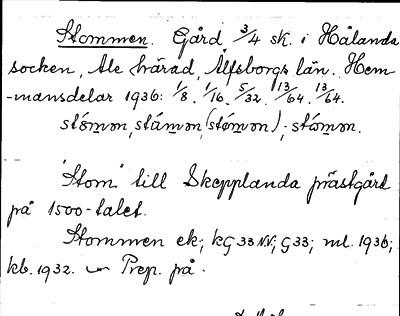 Stommen. Gård 3/4 sk. i Hålanda
socken, Ale härad, Älfsborgs län. Hem
-mansdelar 1936: 1/8. 1/16. 5/32. 13/64. 13/64.
stómon, stámon, (stómon); stómon.
"Stom" till Skepplanda prästgård
på 1500-talet.
Stommen ek; KG 33 NV; G 33; ml. 1936;
kb. 1932. Prep. på.